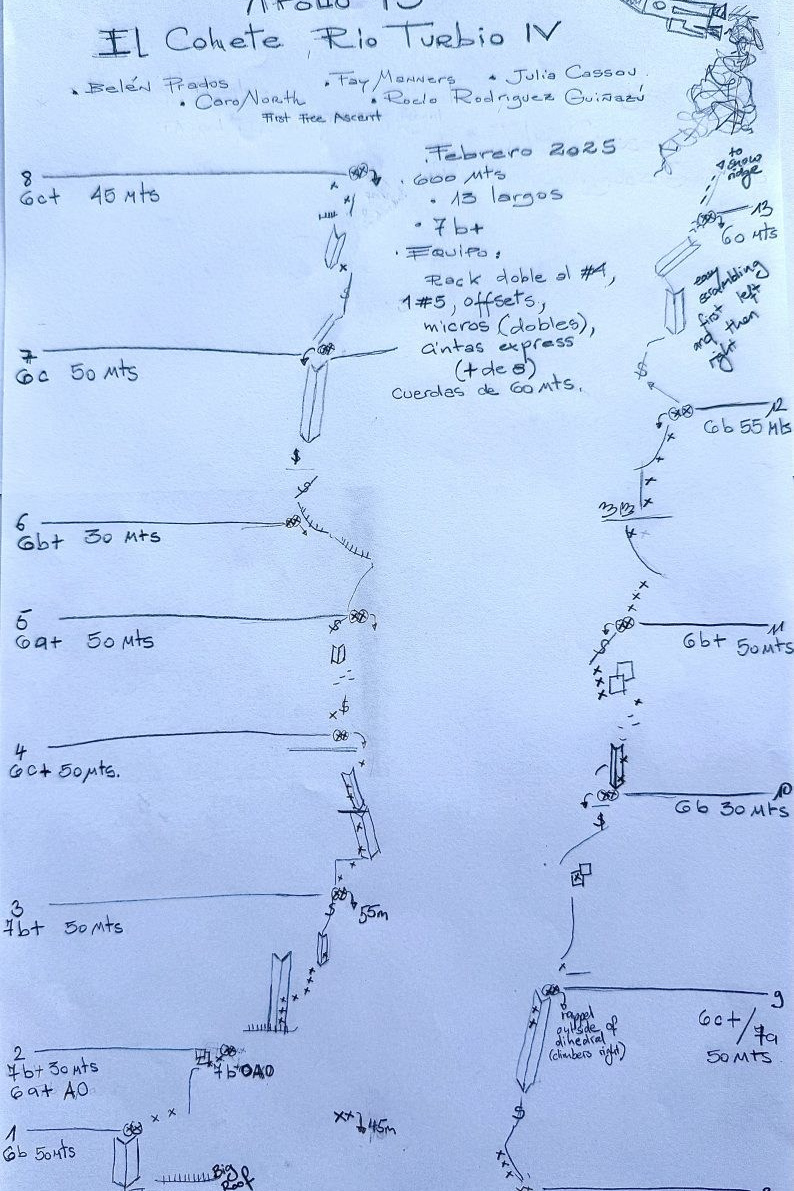 El Cohete Río Turbio IV
• Belén Prados • Fay Manners • Julia Cassou
• Caro North • Rocío Rodriguez Guiñazú
First Free Ascent
• Febrero 2025
• 600 Mts
• 13 largos
• 7b+
• Equipo:
Rack doble al #4,
1#5, offsets,
micros (dobles),
cintas express
(+ de 8)
Cuerdas de 60 Mts.
8
6c+ 45 Mts
7
6c 50 Mts
6
6b+ 30 Mts
5
6a+ 50 Mts
4
6c+ 50Mts.
3
7b+ 50 Mts
55m
2
7b+ 30 Mts
6a+ A0
7b+ O A0
1
6b 50Mts
45m
Big
Roof
to
snow
ridge
13
60 Mts
easy
scrambling
first left
and then
right
12
6b 55 Mts
11
6b+ 50Mts
10
6b 30 Mts
9
6c+/7a
50 Mts
rappel
outside of
dihedral
(climbers right)